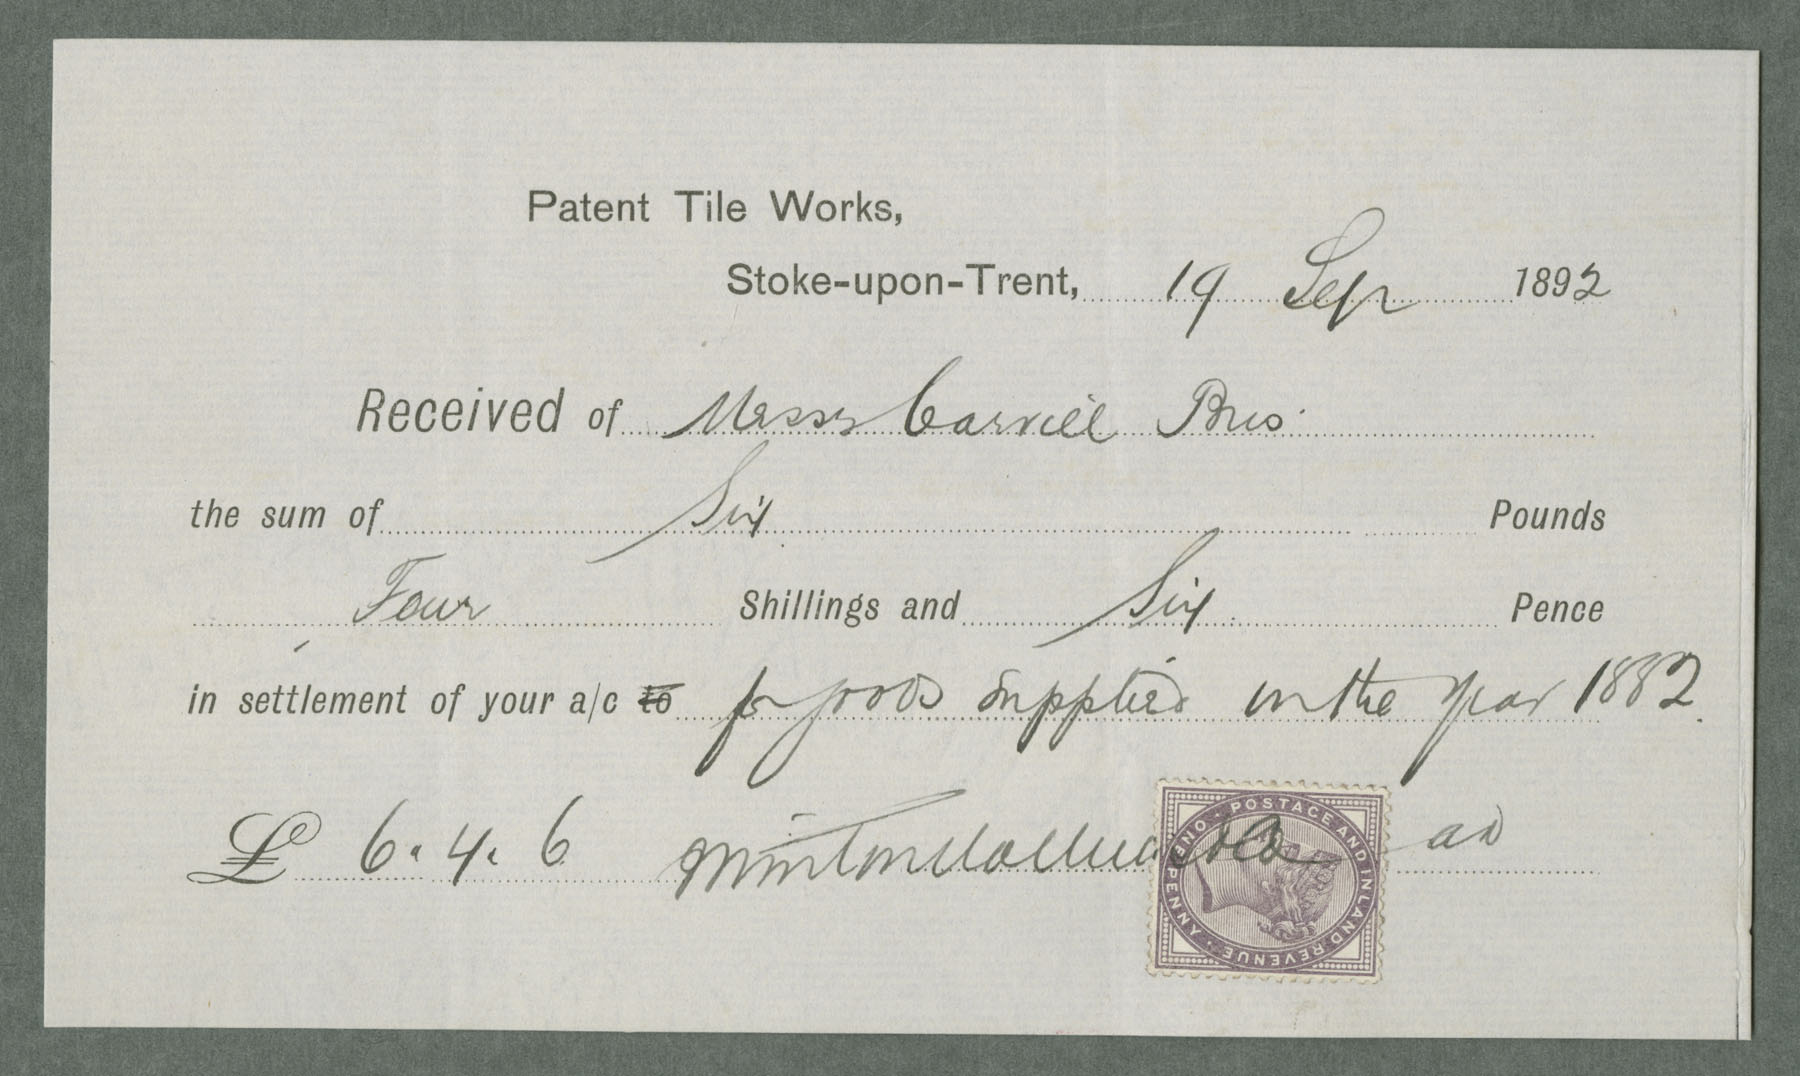 Patent Tile Works,
Stoke-upon-Trent, 19 Sep 1892
Received of Messrs Carvill Bros.
the sum of Six Pounds
Four Shillings and Six Pence
in settlement of your a/c to for goods supplied in the year 1882.
£ 6. 4. 6 Minton Hollins & Co
POSTAGE AND INLAND REVENUE · ONE PENNY ·